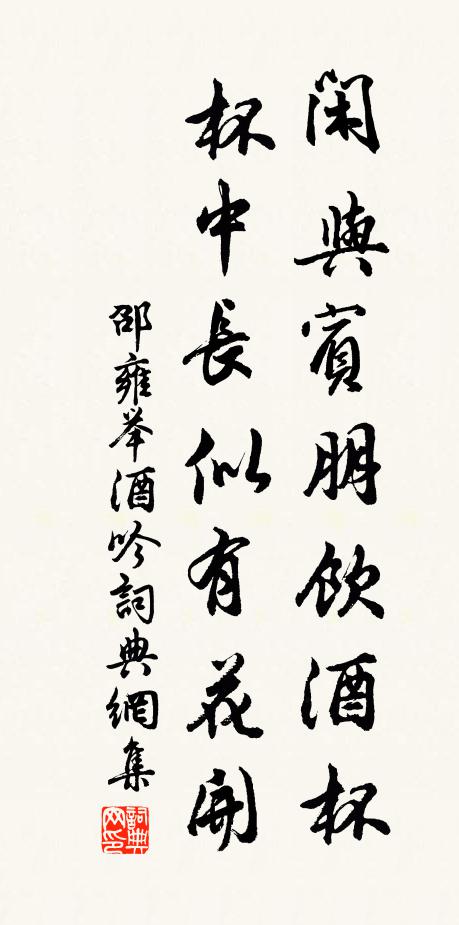 閑與賓朋飲酒杯
杯中長似有花開
邵雍舉酒吟詞典網集
詞典网印